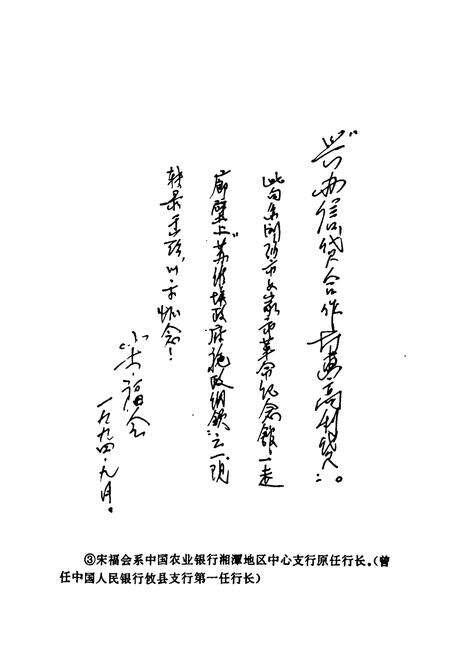 “兴办信贷合作 打击高利贷”。
此句系浏阳市文家市革命纪念馆一走
廊壁上“苏维埃政府施政纲领”之一。现
转录至此,以示怀念!
宋福会
一九九四·九月。
③宋福会系中国农业银行湘潭地区中心支行原任行长。(曾
任中国人民银行攸县支行第一任行长)